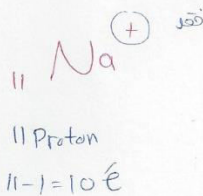 ₁₁Na⁺
11 Proton
11-1=10 é